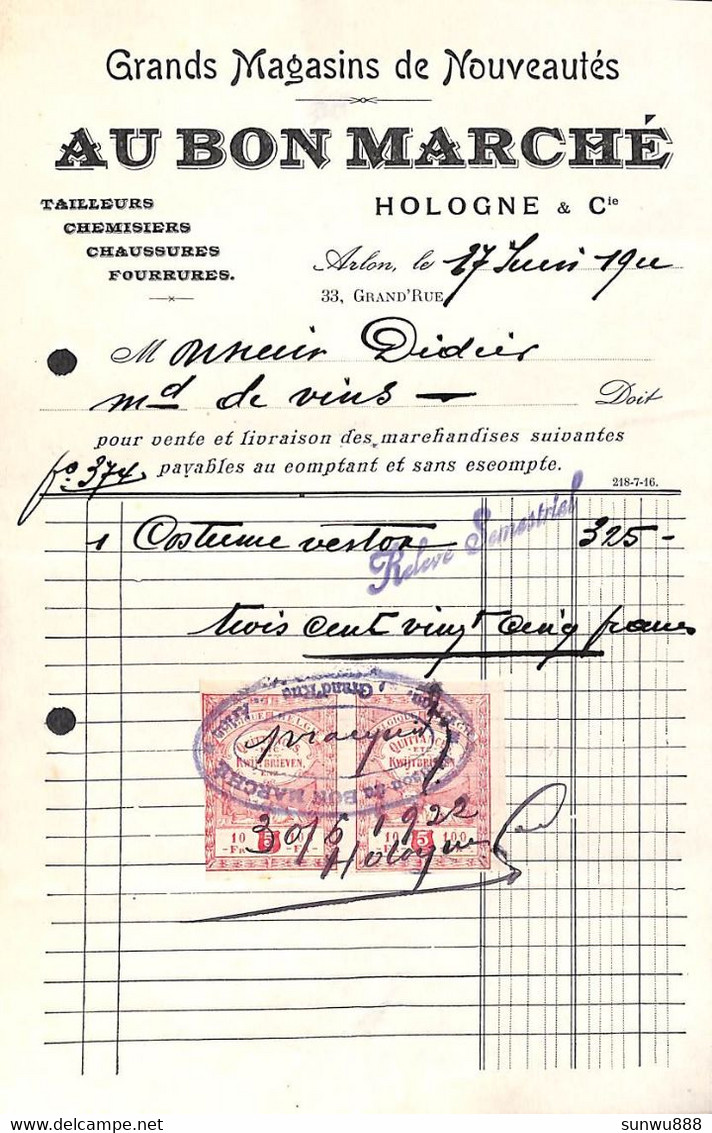 Grands Magasins de Nouveautés
AU BON MARCHÉ
TAILLEURS
CHEMISIERS
CHAUSSURES
FOURRURES.
HOLOGNE & Cie
Arlon, le 27 Juin 1922
33, GRAND'RUE
Monsieur Didier
md de vins — Doit
pour vente et livraison des marchandises suivantes
fo. 374. payables au comptant et sans escompte.
218-7-16.
1 Costume veston 325 -
Relevé Semestriel
trois cent vingt cinq francs
Grand'Rue
QUITTANCES
KWIJTBRIEVEN
BON MARCHÉ
Pr acquit
30/6 1922
Hologne
10 5 100
FR
sunwu888
delcampe.net